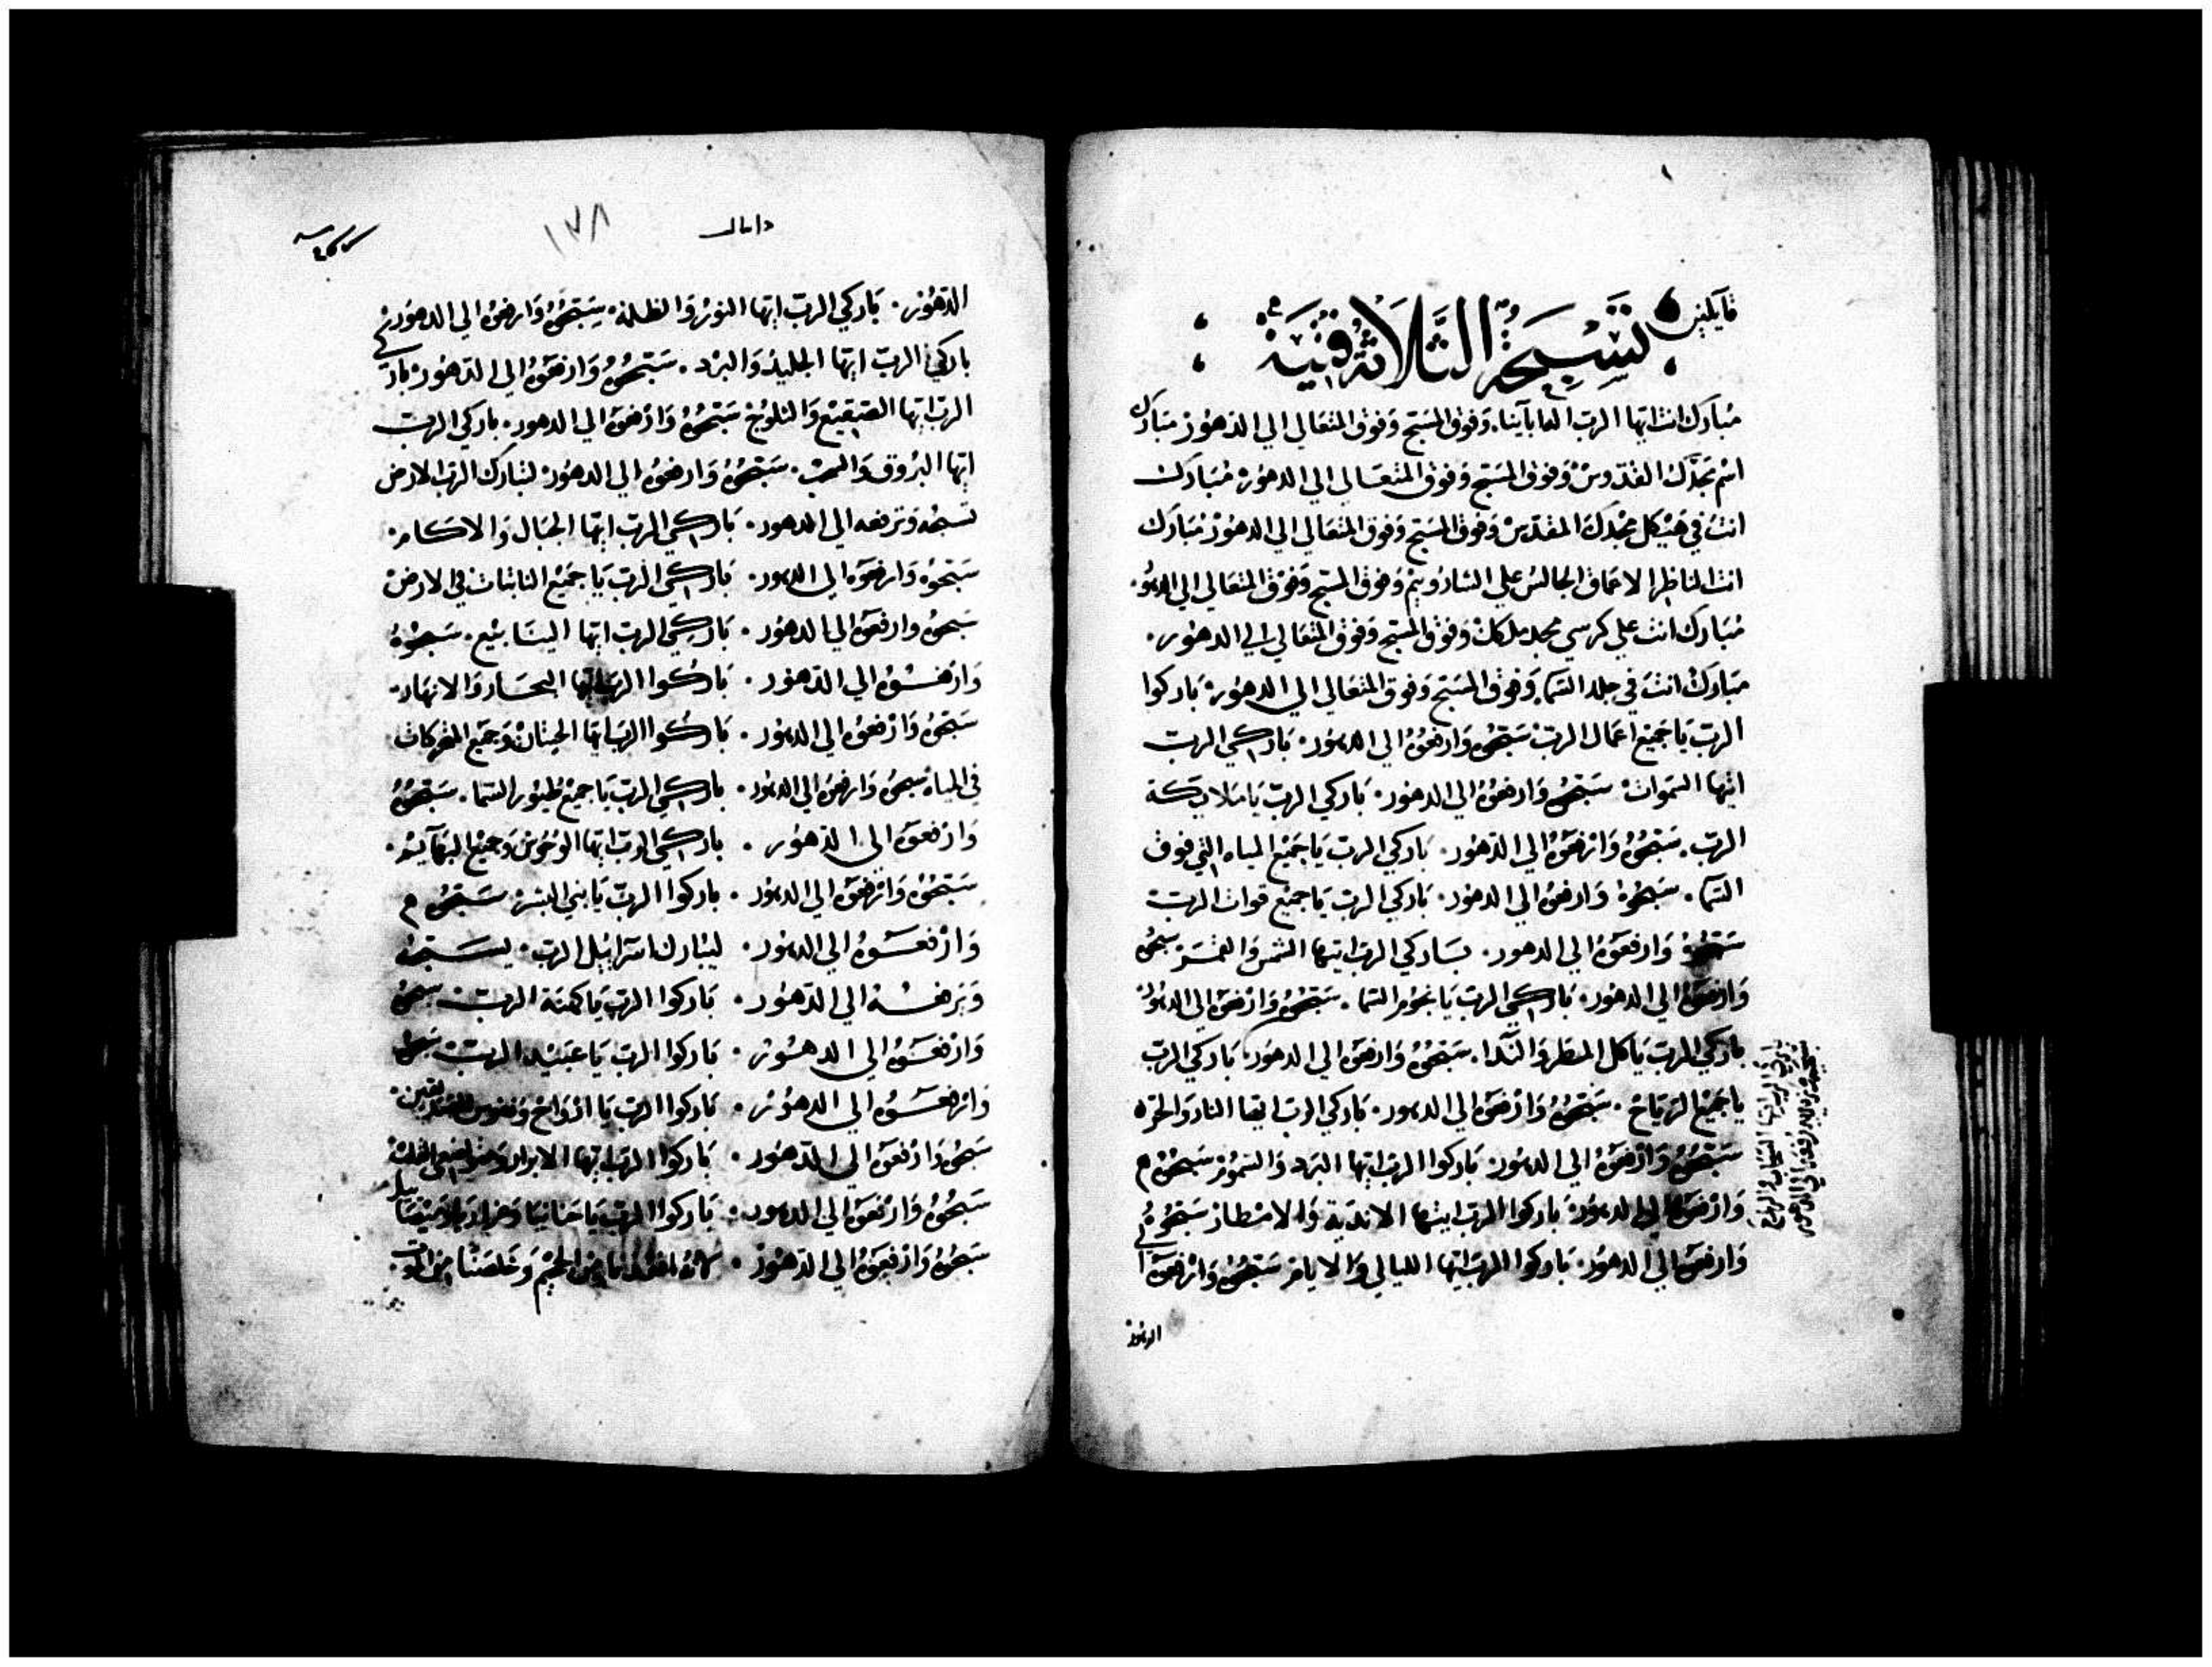 قايلين تَسْبِحَةُ الثَّلاثَة فِتْيَة
مُبَارَك انت ايّها الربّ اله ابآينا. وَفوق المسَبّح وَفوق المتعَالي الي الدهُوْر مُبَارَك
اسْم مَجْدَكَ القدّوسْ وَفوق المسَبّح وَفوق المتعَالي الي الدهُوْر مُبَارَك
انتَ في هَيْكل مَجْدِكَ المقدّسْ وَفوق المسَبّح وَفوق المتعَالي الي الدهُوْر مُبَارَك
انت الناظر الاعمَاق الجالسْ علي الشارُوبيْم وَفوق المسَبّح وَفوْق المتعَالي الي الدهُوْ
مُبَارَك انت علي كرسي مجد ملكك وَفوق المسَبّح وَفوق المتعَالي الي الدهُوْر.
مُبَارَكْ انتَ في جلد السّمَا. وَفوق المسَبّح وَفوق المتعَالي الي الدهُوْر بَاركوا
الربّ يَا جَميْع اعْمَال الربّ سَبّحُوْهُ وَارفعُوْهُ الي الدهُوْر. بَاركي الربّ
ايّتها السّمَوات سَبّحُوْهُ وَارفعُوْهُ الي الدهُوْر. بَاركي الربّ يَا مَلايكة
الربّ. سَبّحُوْهُ وَارْفعُوْهُ الي الدّهُوْر. بَاركي الربّ يَا جَميْع المياه التي فوق
السّمَا. سَبّحُوْهُ وَارفعُوْهُ الي الدهُوْر. بَاركي الربّ يَا جميْع قوات الربّ
سَبّحُوْهُ وَارفعُوْهُ الي الدهور. بَاركي الربّ ايتها الشمْسْ وَالقمَرْ سبحُوْهُ
وَارفعُوْهُ الي الدهُوْر. بَاركي الربّ يَا نجُوْم السّمَا. سَبّحُوْهُ وَارْفعُوْهُ الي الدهُوْر
بَاركي الربّ يَا كل المطَر وَالنّدا. سَبّحُوْهُ وَارفعُوْهُ الي الدهُوْر بَاركي الربّ
يا جَميْع الريَاح. سَبّحُوْهُ وَارْفعُوْهُ الي الدهور. بَاركي الرب ايها النار وَالحرّ
سَبّحُوْهُ وَارْفعُوْهُ الي الدهُوْر بَاركوا الربّ ايّها البرَد وَالسّمُوْم سَبّحُوْهُ
وَارْفعُوْهُ الي الدهُوْر بَاركوا الربّ ايتها الاندية وَالامْطار سَبّحُوْهُ
وَارفعُوْهُ الي الدهُوْر. بَاركوا الربّ ايّتها الليالي وَالايام سَبّحُوْهُ وَارْفعُوْهُ ا
الدهُوْر
دانيال
١٣٨
الدّهُوْر. بَاركي الربّ ايّها النورْ وَالظلمة. سَبّحُوْهُ وَارفعُوْهُ الي الدهُوْر
باركي الربّ ايّها الجليْد وَالبرْد. سَبّحُوْهُ وَارْفعُوْهُ الي الدّهُوْر بارَ
الربّ ايّها الصّقيْع وَالثلوْج سَبّحُوْهُ وَارْفعُوْهُ الي الدهور. باركي الربّ
ايّها البرُوق وَالسحبْ. سَبّحُوْهُ وَارفعُوْهُ الي الدهُوْر لتبَارك الربّ الارض
تسبحُه وَترفعه الي الدهور. بَاركي الربّ ايّها الجبَال وَالاكَام
سَبّحُوْه وَارفعُوْه الي الدهور. بَاركي الربّ يَا جَميْع النابتات في الارض
سَبحُوْهُ وارفعُوْهُ الي الدهُوْر. بَاركي الربّ ايّها الينَابيْع. سَبحُوْهُ
وَارْفعُوْهُ الي الدّهُوْر. بَارُكوا الربّ ايّها البحَار وَالانهَار
سَبّحُوْهُ وَارْفعُوْهُ الي الدهُوْر. بَارُكوا الربّ ايّها الحيتَان وَجَميْع المتحركات
في المياه سبحُوْهُ وَارفعُوْهُ الي الدهُوْر. باركي الربّ يَا جميْع طيُوْر السّمَا. سَبّحُوْهُ
وَارْفعُوْهُ الي الدّهُوْر. باركي الربّ ايّها الوُحُوْش وَجميْع البهَآيمْ.
سَبّحُوْهُ وَارْفعُوْهُ الي الدهُوْر. باركوا الربّ يَا بني البشرْ سَبّحُوْهُ
وَارْفعُوْهُ الي الدهُوْر. ليُبَارك اسْرَائيْل الربّ. يسَبّحُهُ
وَيرفعُه الي الدّهُوْر. بَاركوا الربّ يَا كهنَة الربّ سبحُوْهُ
وَارْفعُوْهُ الي الدهُوْر. بَاركوا الربّ يَا عَبيْد الربّ سَبحُوْهُ
وَارْفعُوْهُ الي الدهُوْر. بَاركوا الربّ يَا ارْوَاح وَنفوس الصديقين
سَبحُوْهُ وَارْفعُوْهُ الي الدّهُوْر. بَاركوا الربّ ايّها الابرار وَمتواضعي القلبْ
سَبحُوْهُ وَارْفعُوْهُ الي الدهور. بَاركوا الربّ يَا حَنانيَا وَعزاريا وميْصَايل
سَبحُوْهُ وَارْفعُوْهُ الي الدّهُوْر. لانهُ انقذنا من الجحيْم وَخَلصَنا من الموت